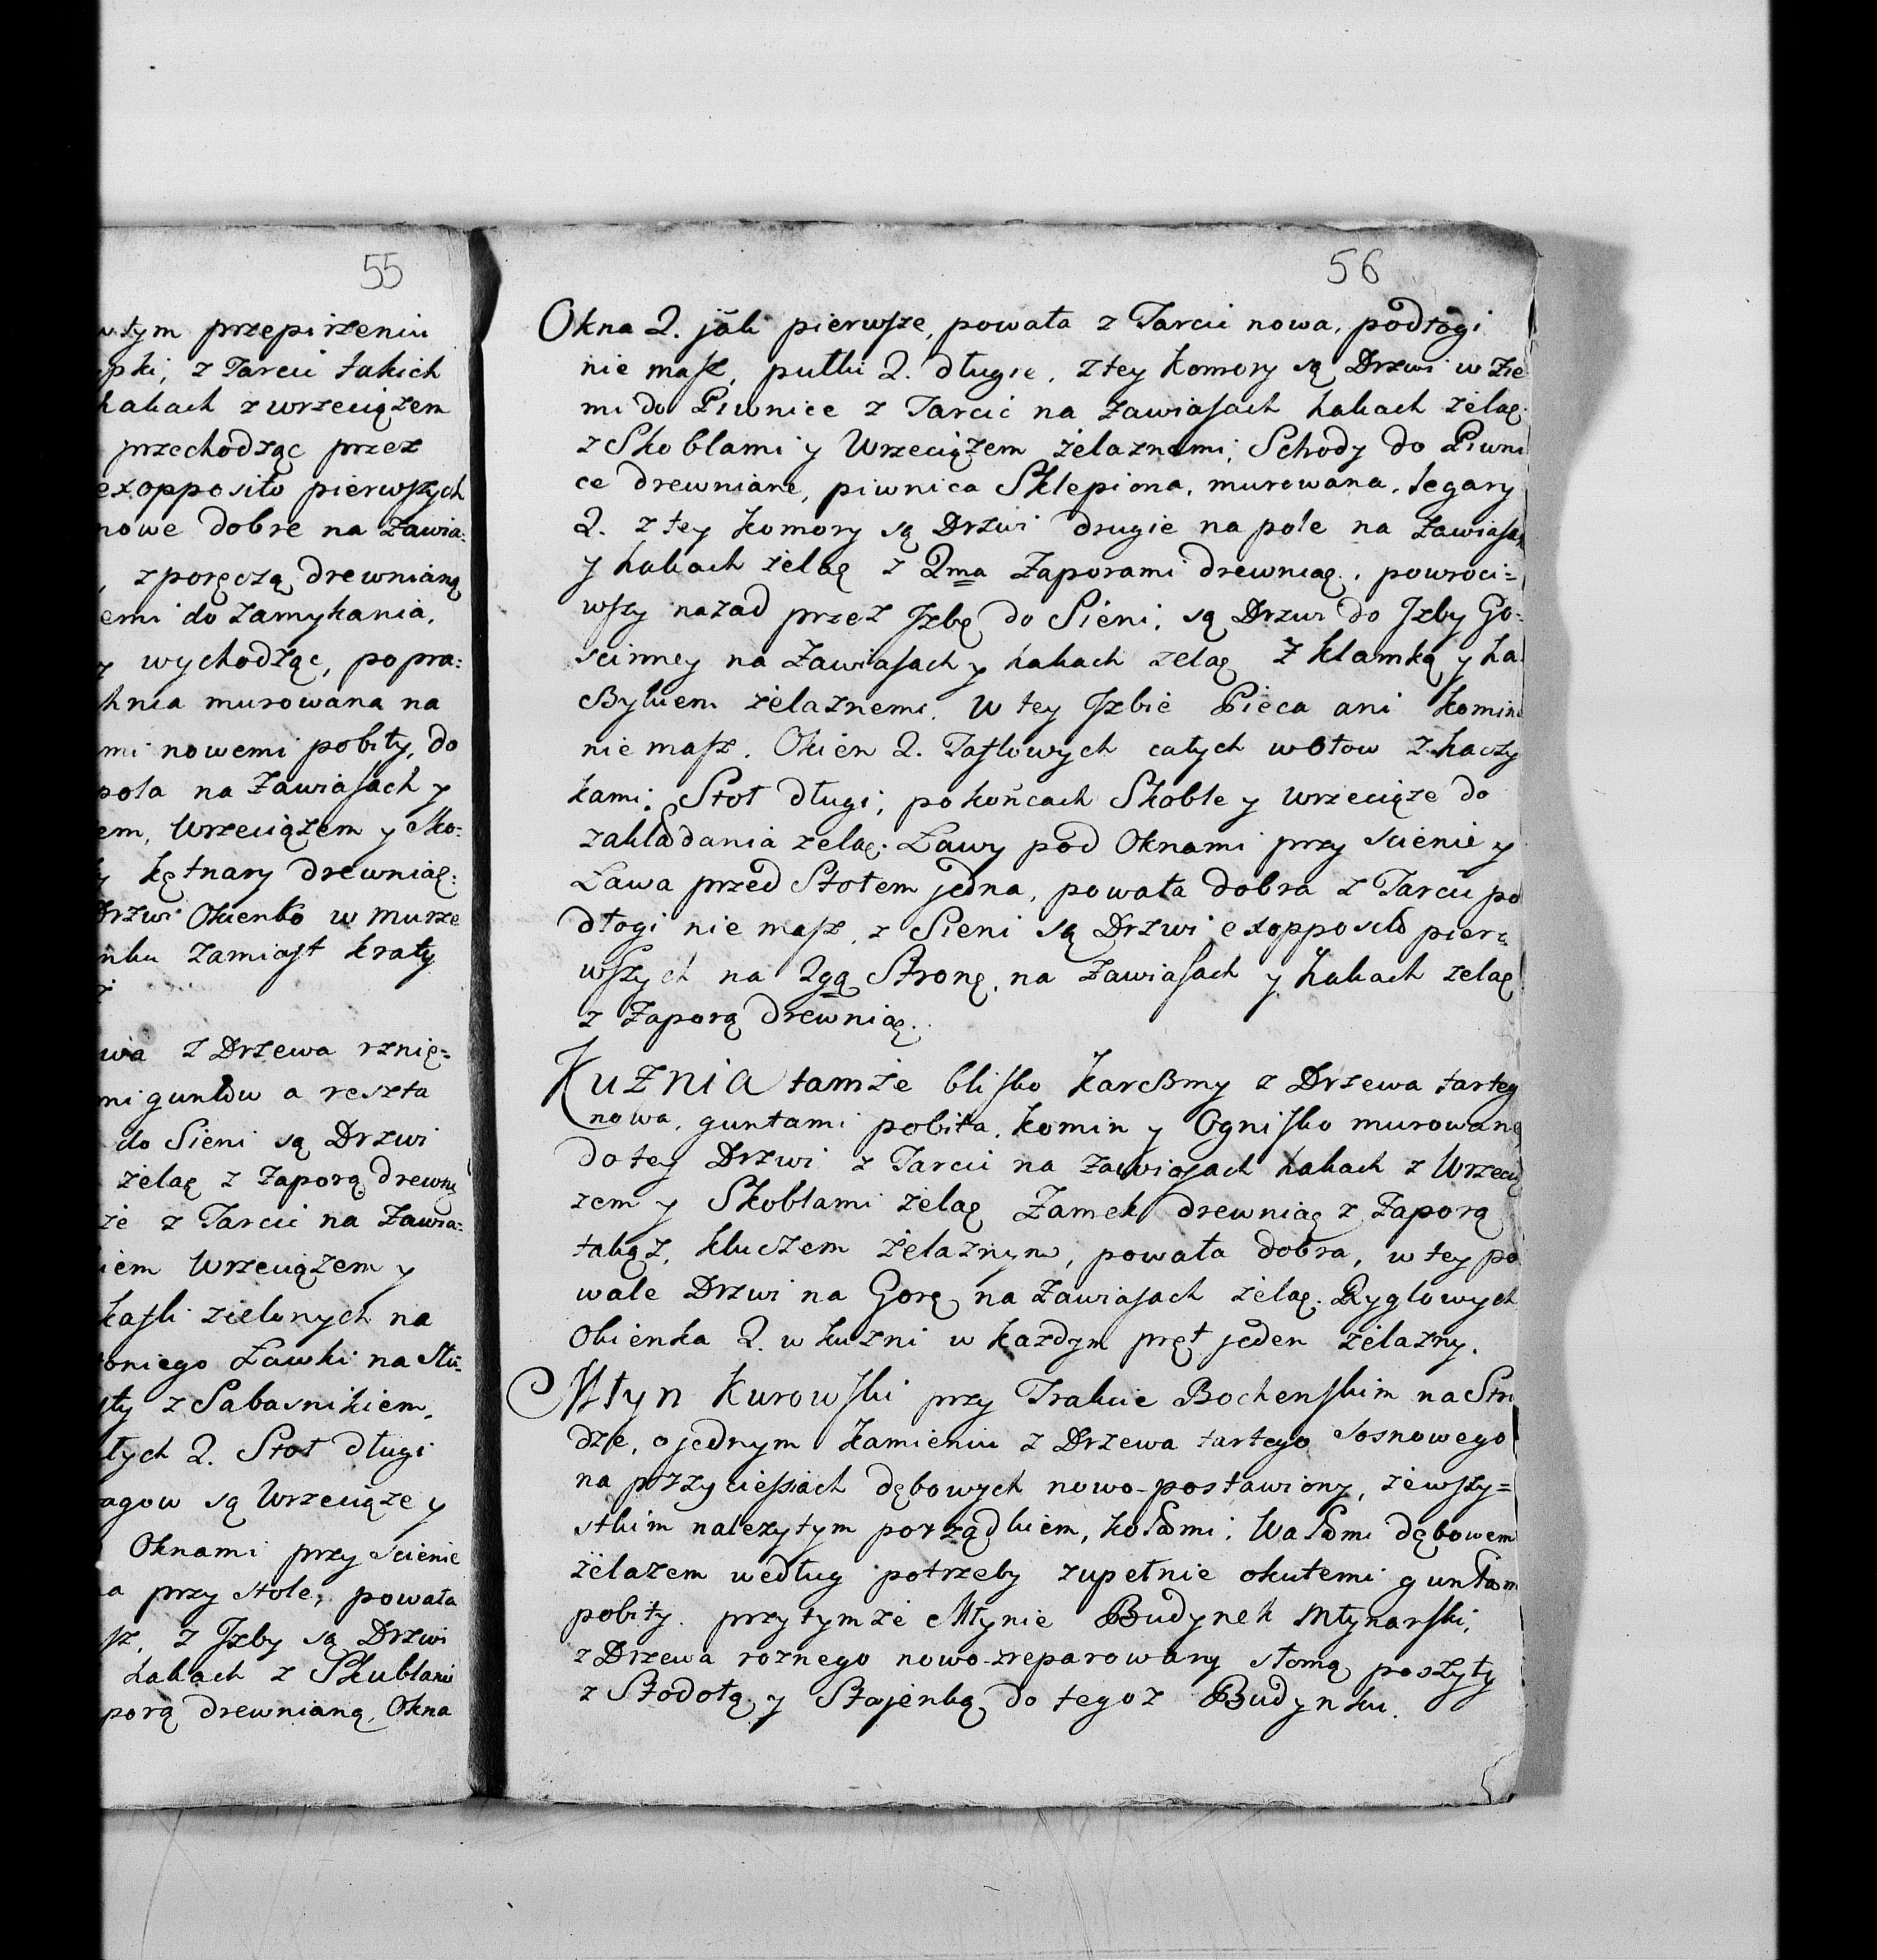 55
w tym przepirzeniu
pki, z Tarcic takich
hakach z wrzeciązem
przechodząc przez
exopposito pierwszych
nowe dobre na Zawia=
z poręczą drewnianą
emi do zamykania,
y wychodząc, po pra=
hnia murowana na
mi nowemi pobity, do
pola na Zawiasach y
em, Wrzeciązem y sko=
y kętnary drewniaę:
Drzwi Okienko w murze
nku zamiast kraty
wa z Drzewa rznię=
mi guntow a reszta
do Sieni są Drzwi
żelaę z Zaporą drewnę
że z Tarcic na Zawia=
iem Wrzeciązem y
kafli zielonych na
oniego Ławki na Stu=
sty z Sabasnikiem,
łych 2. Stoł długi
agow są Wrzeciąze y
Oknami przy scienie
a przy stole, powała
sz, z Jzby są Drzwi
hakach z Skublami
porą drewnianą, Okna
56
Okna 2. jak pierwsze, powała z Tarcic nowa, podłogi
nie masz, pułki 2. długie, z tey Komory są Drzwi w Zie
mi do Piwnice z Tarcic na Zawiasach hakach żelaę.
z Skoblami y Wrzeciązem żelaznemi, Schody do Piwni
ce drewniane, piwnica Sklepiona, murowana, legary
2. z tey Komory są Drzwi drugie na pole na Zawiasah
y hakach żelaę z 2ma Zaporami drewniaę, powroci=
wszy nazad przez Jzbę do Sieni, są Drzwi do Jzby Go=
scinney na Zawiasach y hakach zelaę z klamką y ha
czykiem żelaznemi. W tey Jzbie Pieca ani komina
nie masz. Okien 2. Taflowych całych w ołow z haczy
kami, Stoł długi, po końcach Skoble y wrzeciąze do
zakładania zelaę. Ławy pod Oknami przy scienie y
Ława przed Stołem jedna, powała dobra z Tarcic po
dłogi nie masz, z Sieni są Drzwi exopposito pier=
wszych na 2gą Stronę, na Zawiasach y hakach zelaę
z Zaporą drewniaę.
Kuznia tamże blisko Karczmy z Drzewa tarteg
nowa, guntami pobita, komin y Ognisko murowane
do tey Drzwi z Tarcic na Zawiasach hakach z Wrzecią
zem y Skoblami żelaę Zamek drewniaę z Zaporą
takąz, kluczem żelaznym, powała dobra, w tey po
wale Drzwi na Gorę na Zawiasach żelaę. Ryglowych
Okienka 2. w kuzni w każdym pręt jeden żelazny.
Młyn Kurowski przy Trakcie Bochenskim na Stru
dze, o jednym Kamieniu z Drzewa tartego Sosnowego
na przyciesiach dębowych nowo-postawiony, ze wszy=
stkim należytym porządkiem, kołami, Wałami dębowem
żelazem według potrzeby zupełnie okutemi guntam
pobity. przy tymże Młynie Budynek Młynarski,
z Drzewa roznego nowo-zreparowany słomą poszyty
z Stodołą y Stajenką do tegoz Budynku.